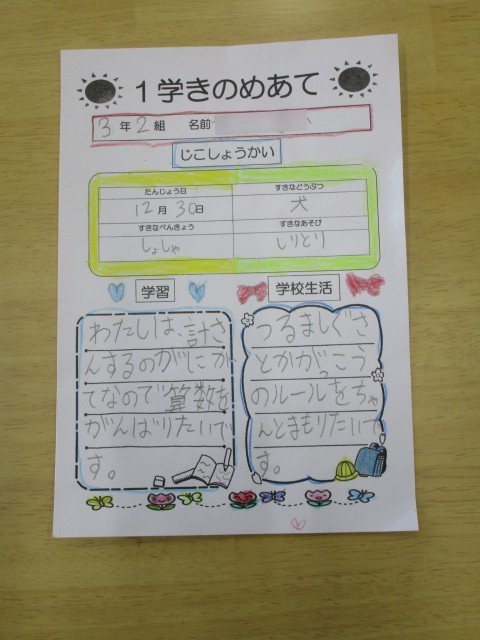 1学きのめあて
3年2組 名前
じこしょうかい
たんじょう日
12月30日
すきなどうぶつ
犬
すきなべんきょう
しょしゃ
すきなあそび
しりとり
学習
わたしは、計さ
んするのがにが
てなので算数を
がんばりたいで
す。
学校生活
つるましぐさ
とかがっこう
のルールをちゃ
んとまもりたいで
す。